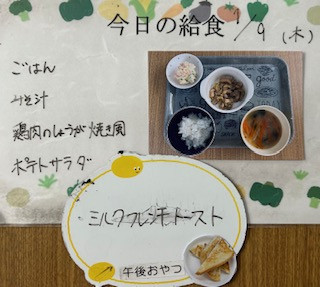 今日の給食 1/9 (木)
ごはん
みそ汁
鶏肉のしょうが焼き風
ポテトサラダ
ミルクフレンチトースト
午後おやつ